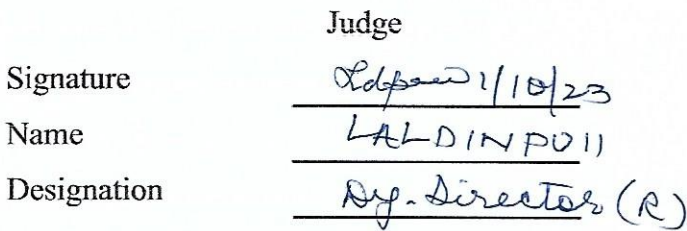 Judge
Signature 1/10/23
Name LALDINPUII
Designation Dy. Director (R)